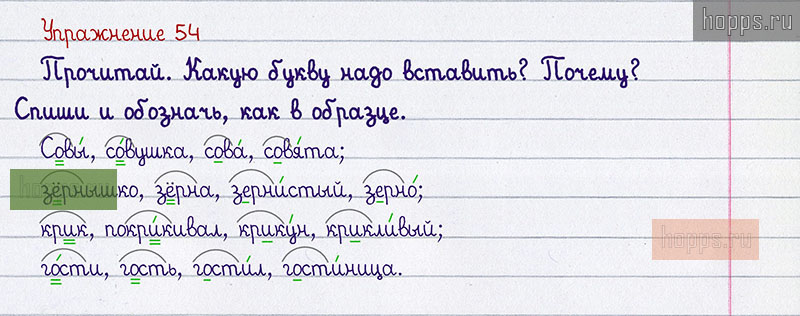 hopps.ru
Упражнение 54
Прочитай. Какую букву надо вставить? Почему?
Спиши и обозначь, как в образце.
Совы́, со́вушка, сова́, совя́та;
зёрнышко, зёрна, зерни́стый, зерно́;
крик, покри́кивал, крику́н, крикли́вый;
hopps.ru
го́сти, гость, гости́л, гости́ница.